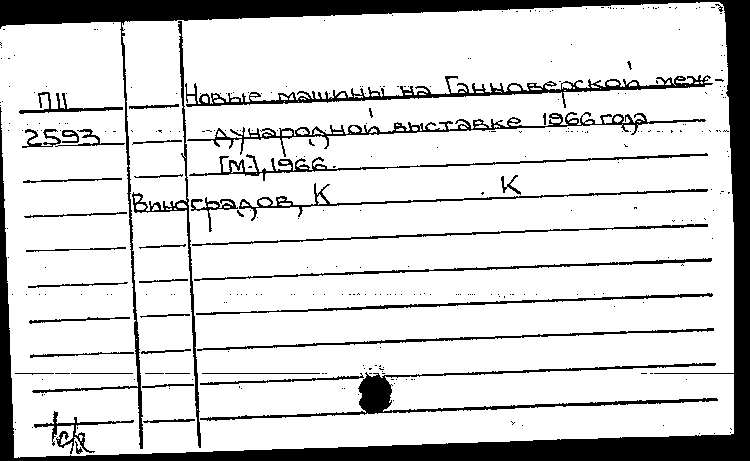 П11 Новые машины на Ганноверской меж-
2593 дународной выставке 1966 года.
[М.], 1966.
Виноградов, К К